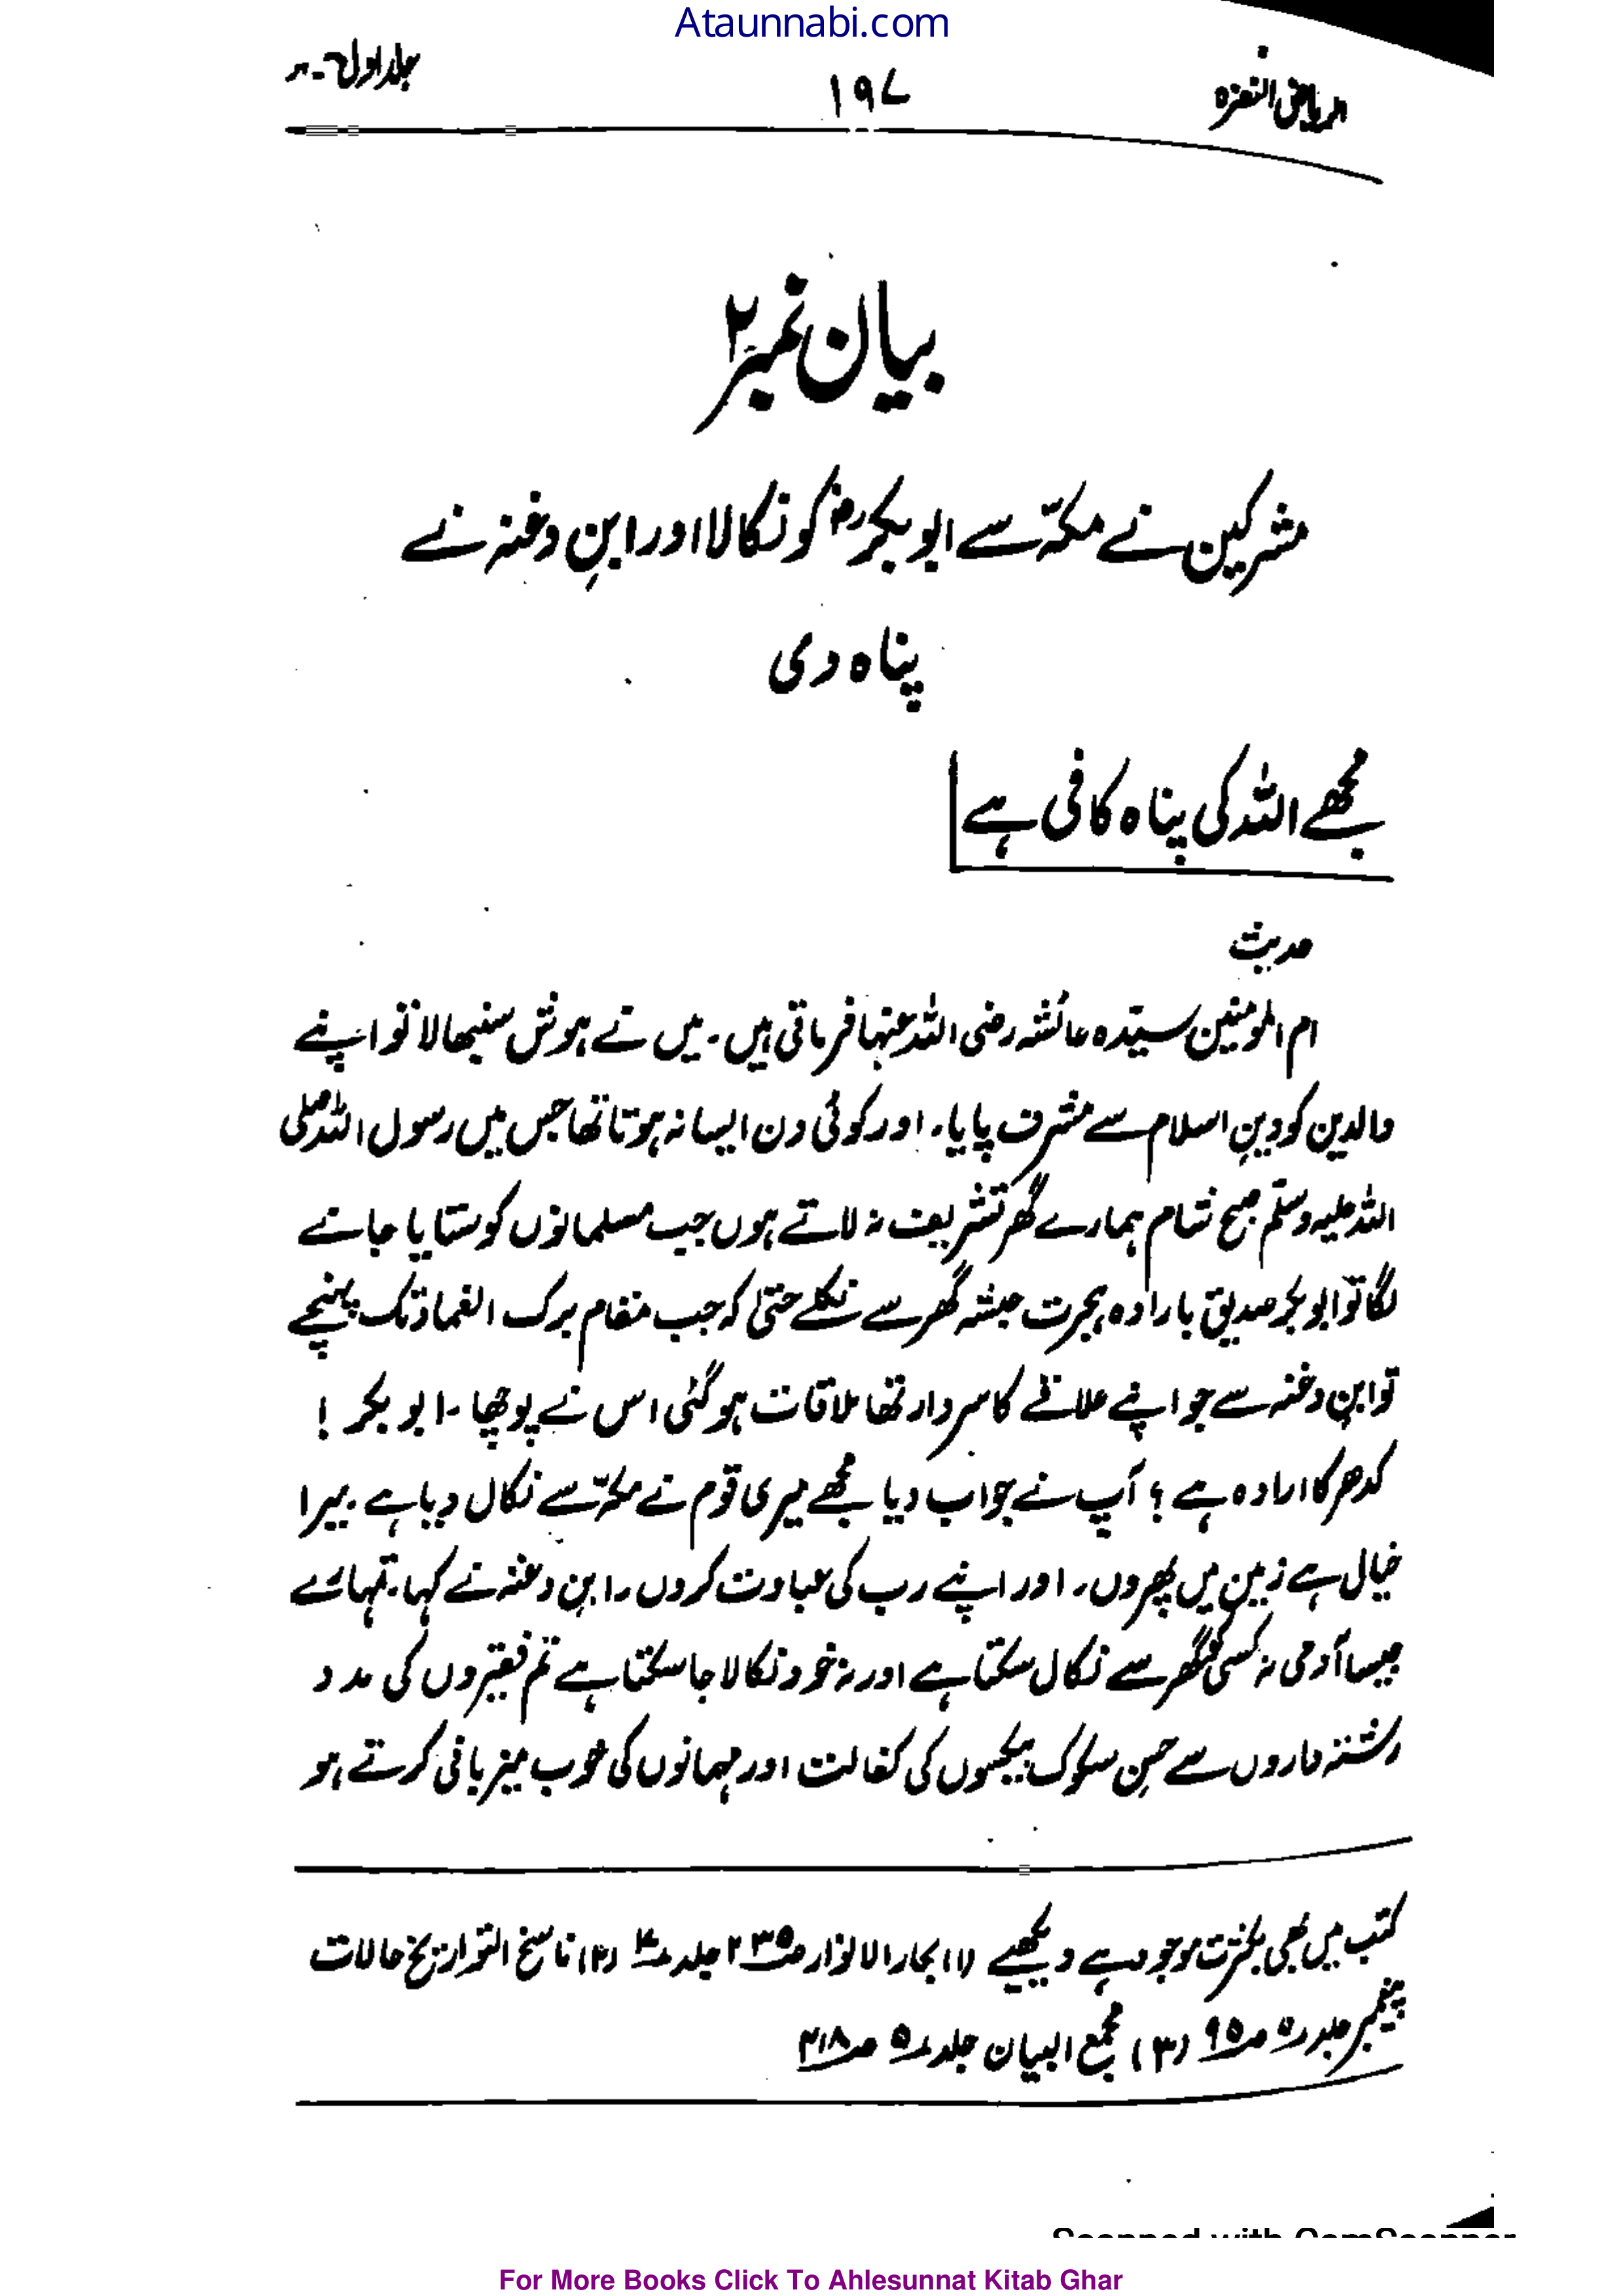 Ataunnabi.com
الریاض النضرہ ۱۹۷ جلد اول
بیان نمبر ۲
مشرکین نے مکہّ سے ابو بکررض کو نکالا اور ابنِ دغنہ نے
پناہ دی
مجھے اللہ کی پناہ کافی ہے
حدیث
ام المومنین سیّدہ عائشہ رضی اللہ عنہا فرماتی ہیں۔ میں نے ہوش سنبھالا تو اپنے
والدین کو دینِ اسلام سے مشرف پایا۔ اور کوئی دن ایسا نہ ہوتا تھا جس میں رسول اللہ صلی
اللہ علیہ وسلّم صبح شام ہمارے گھر تشریف نہ لاتے ہوں جب مسلمانوں کو ستایا جانے
لگا تو ابو بکر صدیق بارادہ ہجرت حبشہ گھر سے نکلے حتیٰ کہ جب مقام برک الغماد تک پہنچے
تو ابنِ دغنہ سے جو اپنے علاقے کا سردار تھا ملاقات ہو گئی اس نے پوچھا۔ ابو بکر !
کدھر کا ارادہ ہے ؟ آپ نے جواب دیا مجھے میری قوم نے مکہّ سے نکال دیا ہے۔ میرا
خیال ہے زمین میں پھروں۔ اور اپنے رب کی عبادت کروں۔ ابنِ دغنہ نے کہا۔ تمہارے
جیسا آدمی نہ کسی کو گھر سے نکال سکتا ہے اور نہ خود نکالا جا سکتا ہے تم فقیروں کی مدد
رشتہ داروں سے حسنِ سلوک بیکسوں کی کفالت اور مہمانوں کی خوب میزبانی کرتے ہو
کتب میں بھی بکثرت موجود ہے دیکھیے (۱) بحار الانوار صـ ۲۳۵ جلد ۴ (۲) ناسخ التواریخ حالات
پیغمبر جلد ۵ صـ ۹۵ (۳) مجمع البیان جلد ۵ صـ ۲۱۸
Scanned with CamScanner
For More Books Click To Ahlesunnat Kitab Ghar